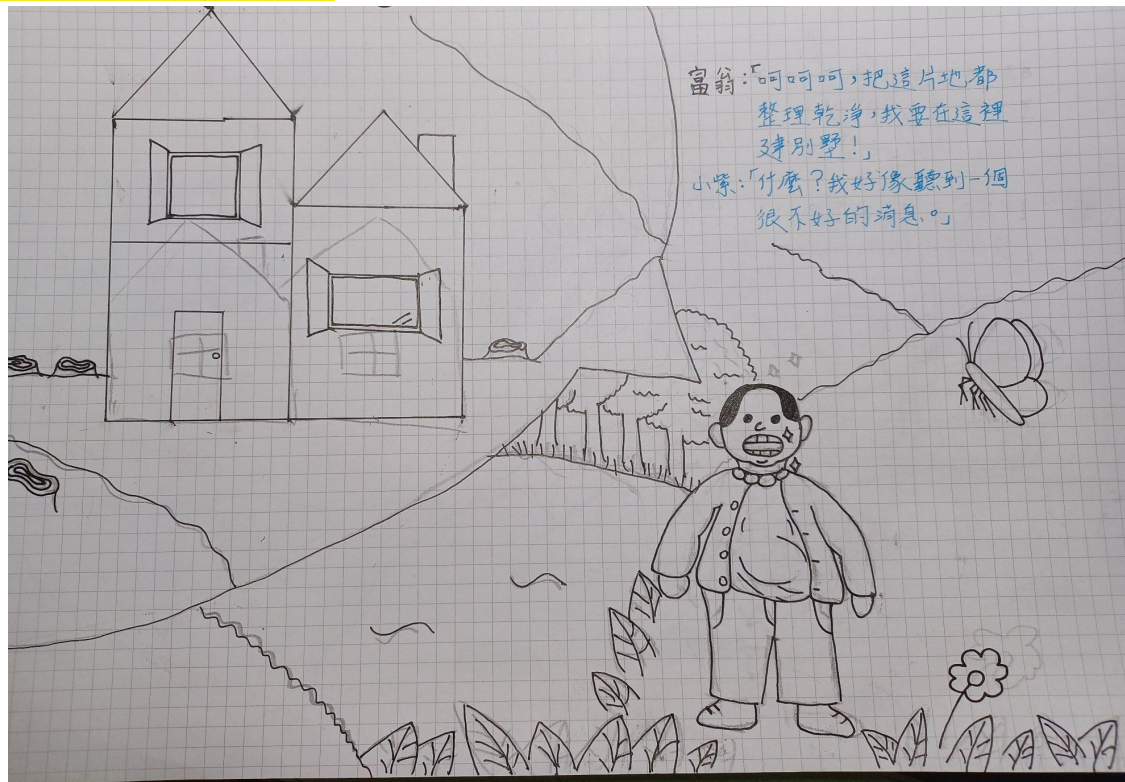 富翁:「呵呵呵,把這片地都
整理乾淨,我要在這裡
建別墅!」
小紫:「什麼?我好像聽到一個
很不好的消息。」